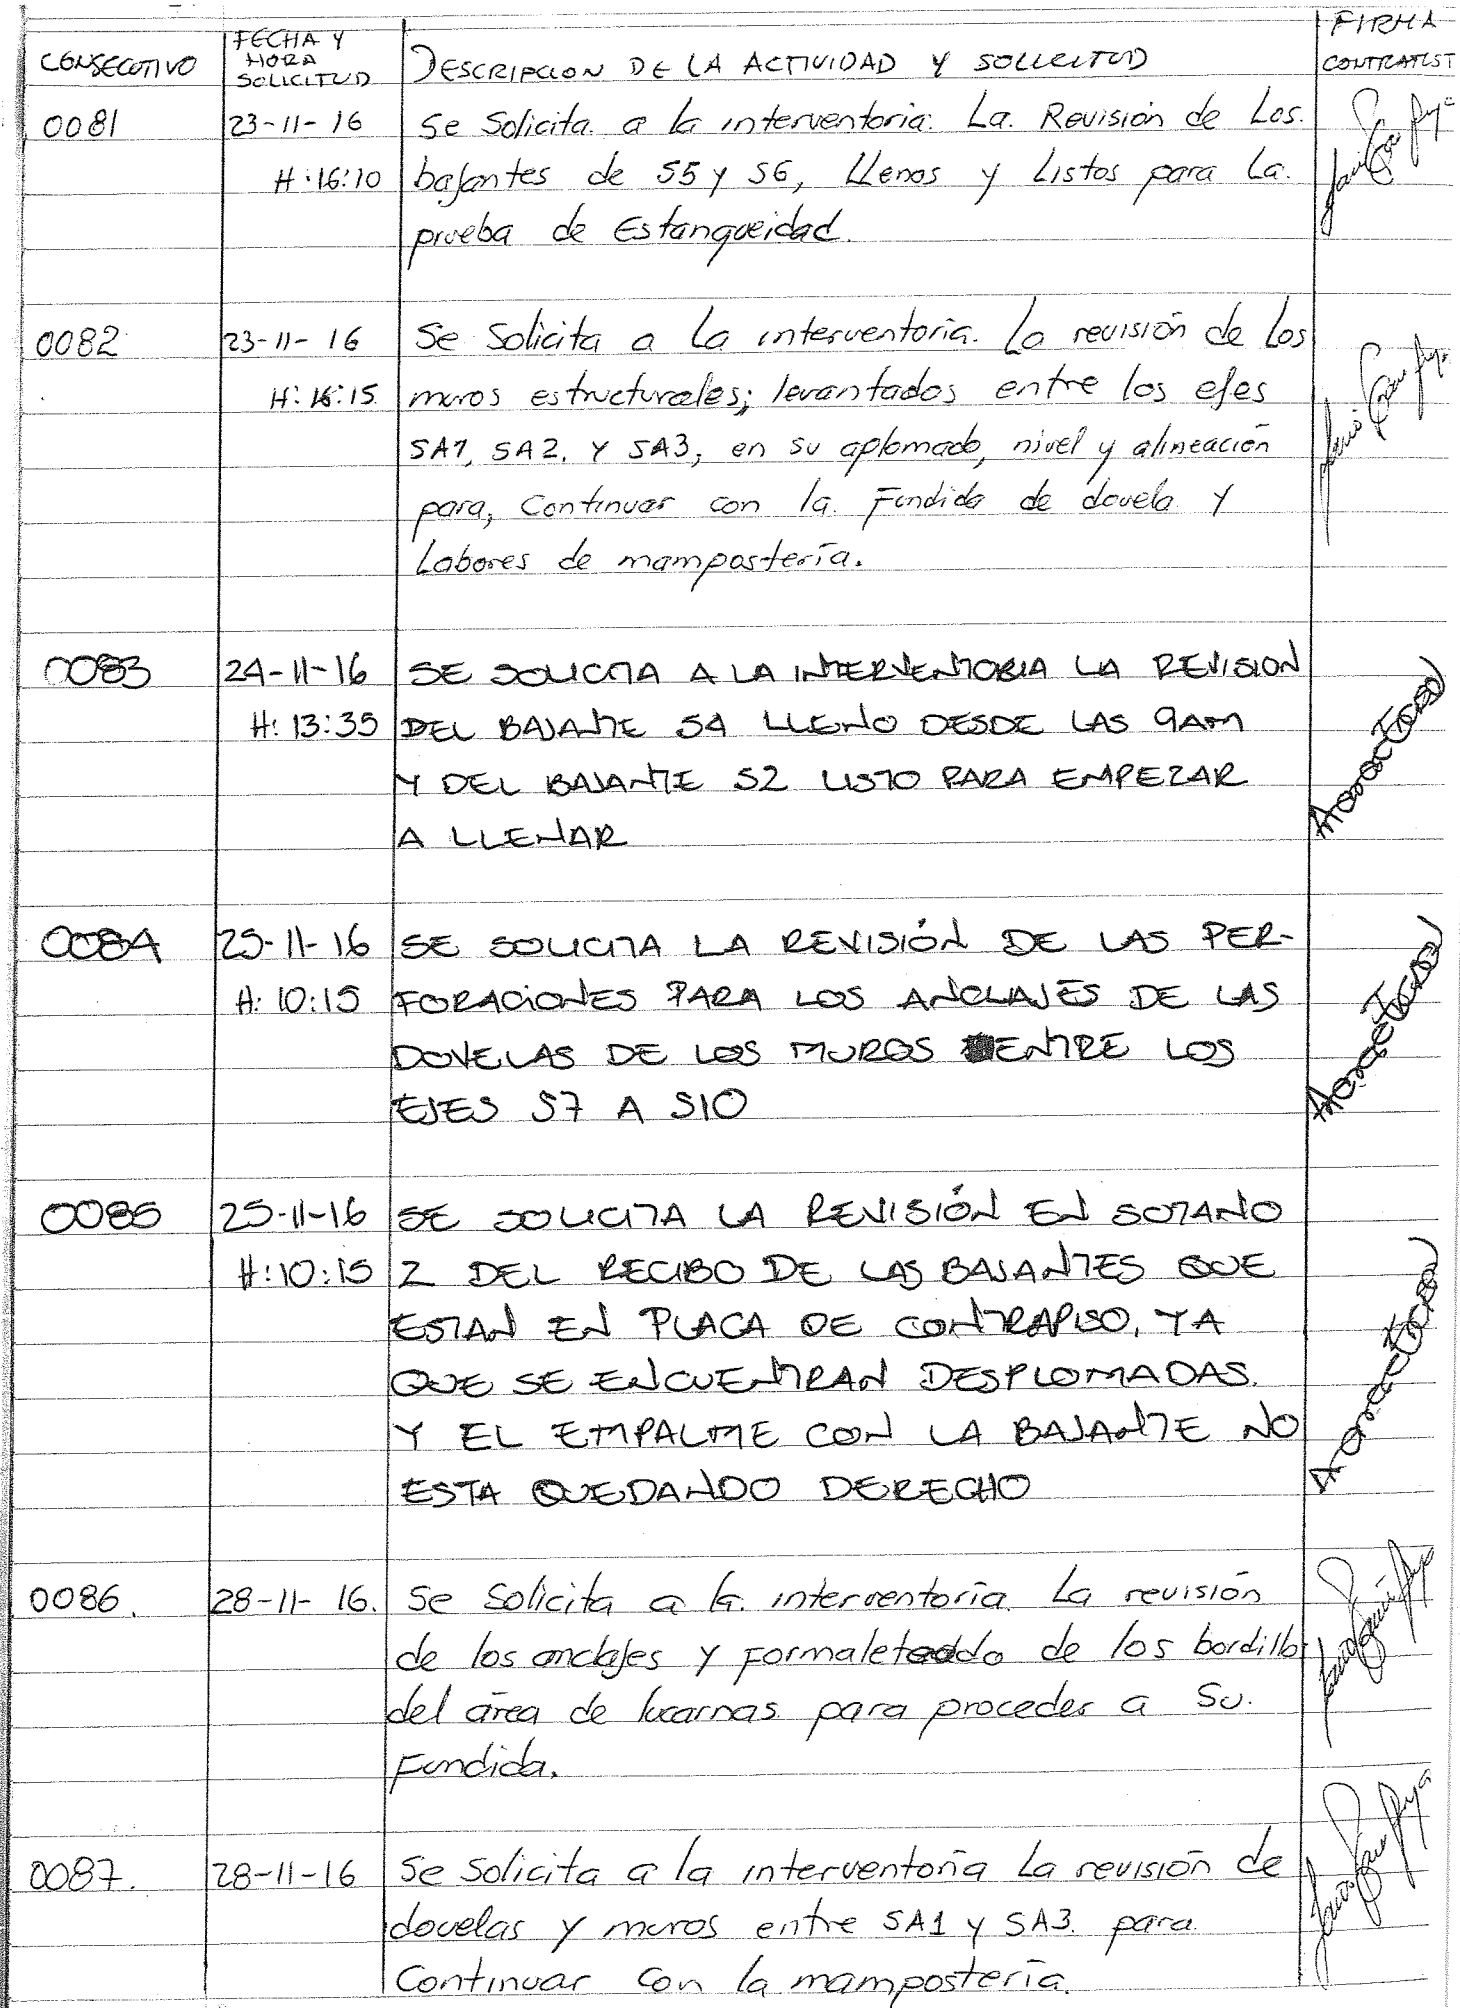 CONSECUTIVO FECHA Y HORA SOLICITUD DESCRIPCION DE LA ACTIVIDAD Y SOLICITUD FIRMA CONTRATIST
0081 23-11-16 Se Solicita a la interventoria. La Revisión de Los.
H:16:10 bajantes de S5 y S6, Llenos y Listos para La.
prueba de Estanqueidad.
0082 23-11-16 Se Solicita a La interventoria. La revisión de Los
H:16:15 muros estructurales; levantados entre los ejes
SA1, SA2. Y SA3, en su aplomado, nivel y alineación
para, Continuar con la Fundida de dovela Y
Labores de mampostería.
0083 24-11-16 SE SOLICITA A LA INTERVENTORIA LA REVISION
H: 13:35 DEL BAJANTE S4 LLENO DESDE LAS 9AM
Y DEL BAJANTE S2 LISTO PARA EMPEZAR
A LLENAR
0084 25-11-16 SE SOLICITA LA REVISIÓN DE LAS PER-
H: 10:15 FORACIONES PARA LOS ANCLAJES DE LAS
DOVELAS DE LOS MUROS ENTRE LOS
EJES S7 A S10
0085 25-11-16 SE SOLICITA LA REVISIÓN EN SOTANO
H:10:15 2 DEL RECIBO DE LAS BAJANTES QUE
ESTAN EN PLACA DE CONTRAPISO, YA
QUE SE ENCUENTRAN DESPLOMADAS.
Y EL EMPALME CON LA BAJANTE NO
ESTA QUEDANDO DERECHO
0086. 28-11-16. Se Solicita a la interventoria La revisión
de los anclajes y Formaleteado de los bordillo
del área de lucarnas para proceder a Su.
Fundida.
0087. 28-11-16 Se Solicita a la interventoria La revisión de
dovelas y muros entre SA1 y SA3. para
Continuar Con la mampostería.